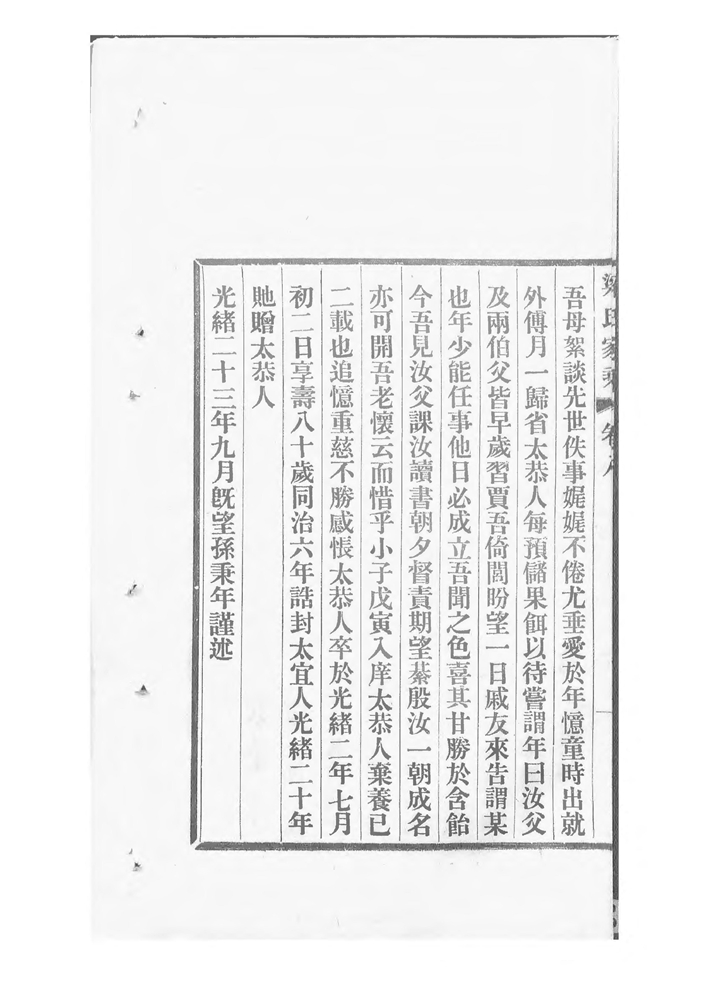 家乘 卷八
吾母絮談先世佚事娓娓不倦尤垂愛於年憶童時出就
外傅月一歸省太恭人每預儲果餌以待嘗謂年曰汝父
及兩伯父皆早歲習賈吾倚閭盼望一日戚友來告謂某
也年少能任事他日必成立吾聞之色喜其甘勝於含飴
今吾見汝父課汝讀書朝夕督責期望綦殷汝一朝成名
亦可開吾老懷云而惜乎小子戊寅入庠太恭人棄養已
二載也追憶重慈不勝感悵太恭人卒於光緒二年七月
初二日享壽八十歲同治六年誥封太宜人光緒二十年
貤贈太恭人
光緒二十三年九月既望孫秉年謹述